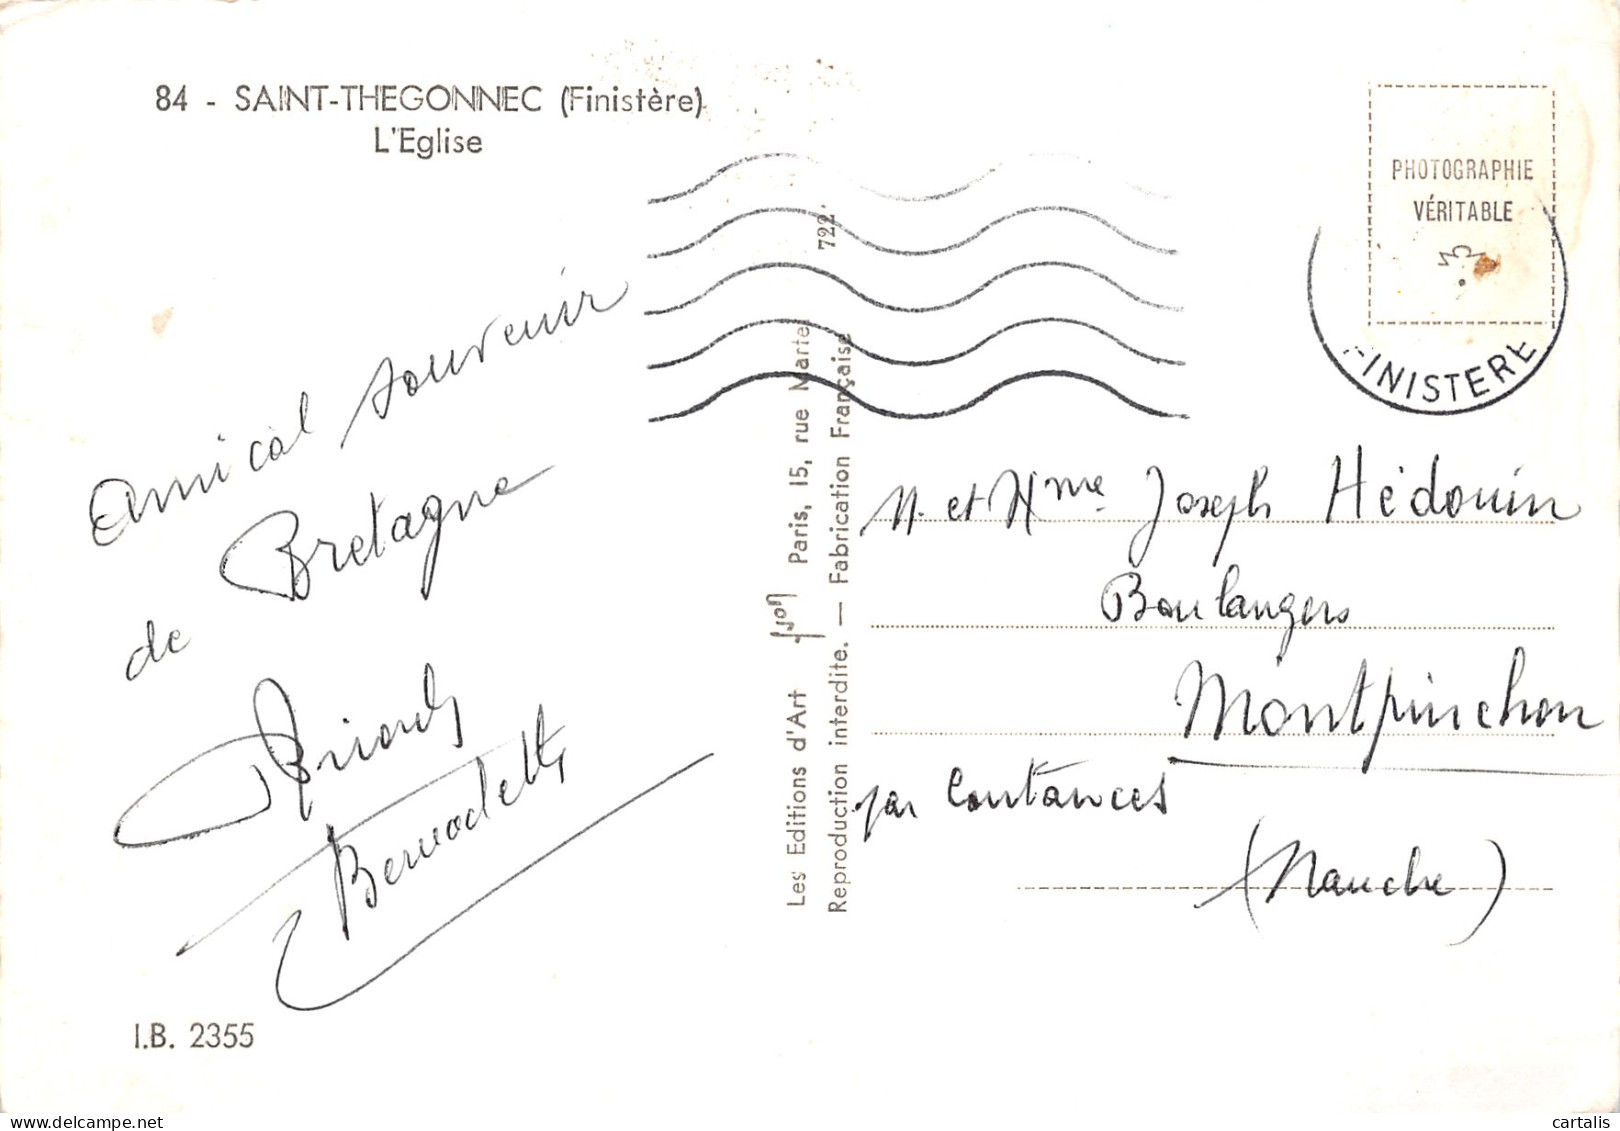 84 - SAINT-THEGONNEC (Finistère)
L'Eglise
PHOTOGRAPHIE
VÉRITABLE
FINISTERE
722
Amical souvenir
de Bretagne
Bernadette
I.B. 2355
Les Editions d'Art Yvon Paris, 15, rue Martel
Reproduction interdite. — Fabrication Française
M. et Mme Joseph Hédouin
Boulangers
Montpinchon
par Coutances
(Manche)
cartalis
www.delcampe.net